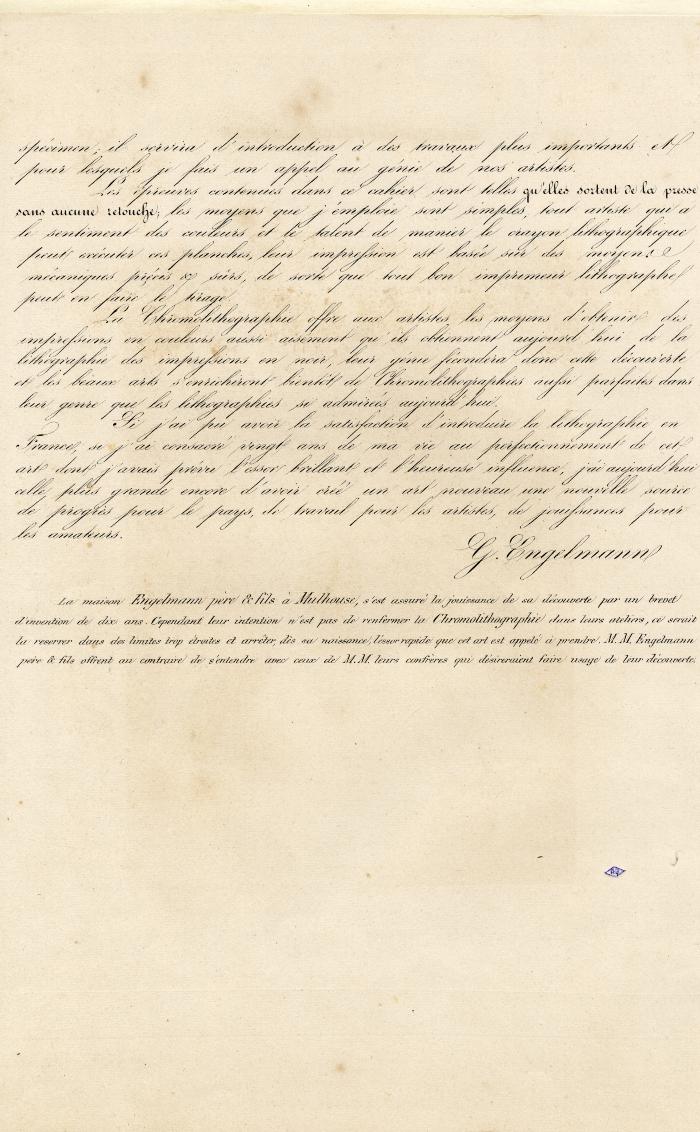 spécimen; il servira d'introduction à des travaux plus importants et
pour lesquels je fais un appel au génie de nos artistes.
Les épreuves contenues dans ce cahier sont telles qu'elles sortent de la presse
sans aucune retouche; les moyens que j'emploie sont simples, tout artiste qui a
le sentiment des couleurs et le talent de manier le crayon lithographique
peut exécuter ces planches, leur impression est basée sur des moyens
mécaniques précis & sûrs, de sorte que tout bon imprimeur lithographe
peut en faire le tirage.
La Chromolithographie offre aux artistes les moyens d'obtenir des
impressions en couleurs aussi aisément qu'ils obtiennent aujourd'hui de la
lithographie des impressions en noir, leur génie fécondera donc cette découverte
et les beaux arts s'enrichiront bientôt de Chromolithographies aussi parfaites dans
leur genre que les lithographies si admirées aujourd'hui.
Si j'ai pu avoir la satisfaction d'introduire la lithographie en
France, si j'ai consacré vingt ans de ma vie au perfectionnement de cet
art dont j'avais prévu l'essor brillant et l'heureuse influence, j'ai aujourd'hui
celle plus grande encore d'avoir créé un art nouveau une nouvelle source
de progrès pour le pays, de travail pour les artistes, de jouissances pour
les amateurs.
G. Engelmann
La maison Engelmann père & fils à Mulhouse, s'est assuré la jouissance de sa découverte par un brevet
d'invention de dix ans. Cependant leur intention n'est pas de renfermer la Chromolithographie dans leurs ateliers, ce serait
la resserrer dans des limites trop étroites et arrêter, dès sa naissance, l'essor rapide que cet art est appelé à prendre. M.M. Engelmann
père & fils offrent au contraire de s'entendre avec ceux de M.M. leurs confrères qui désireraient faire usage de leur découverte.